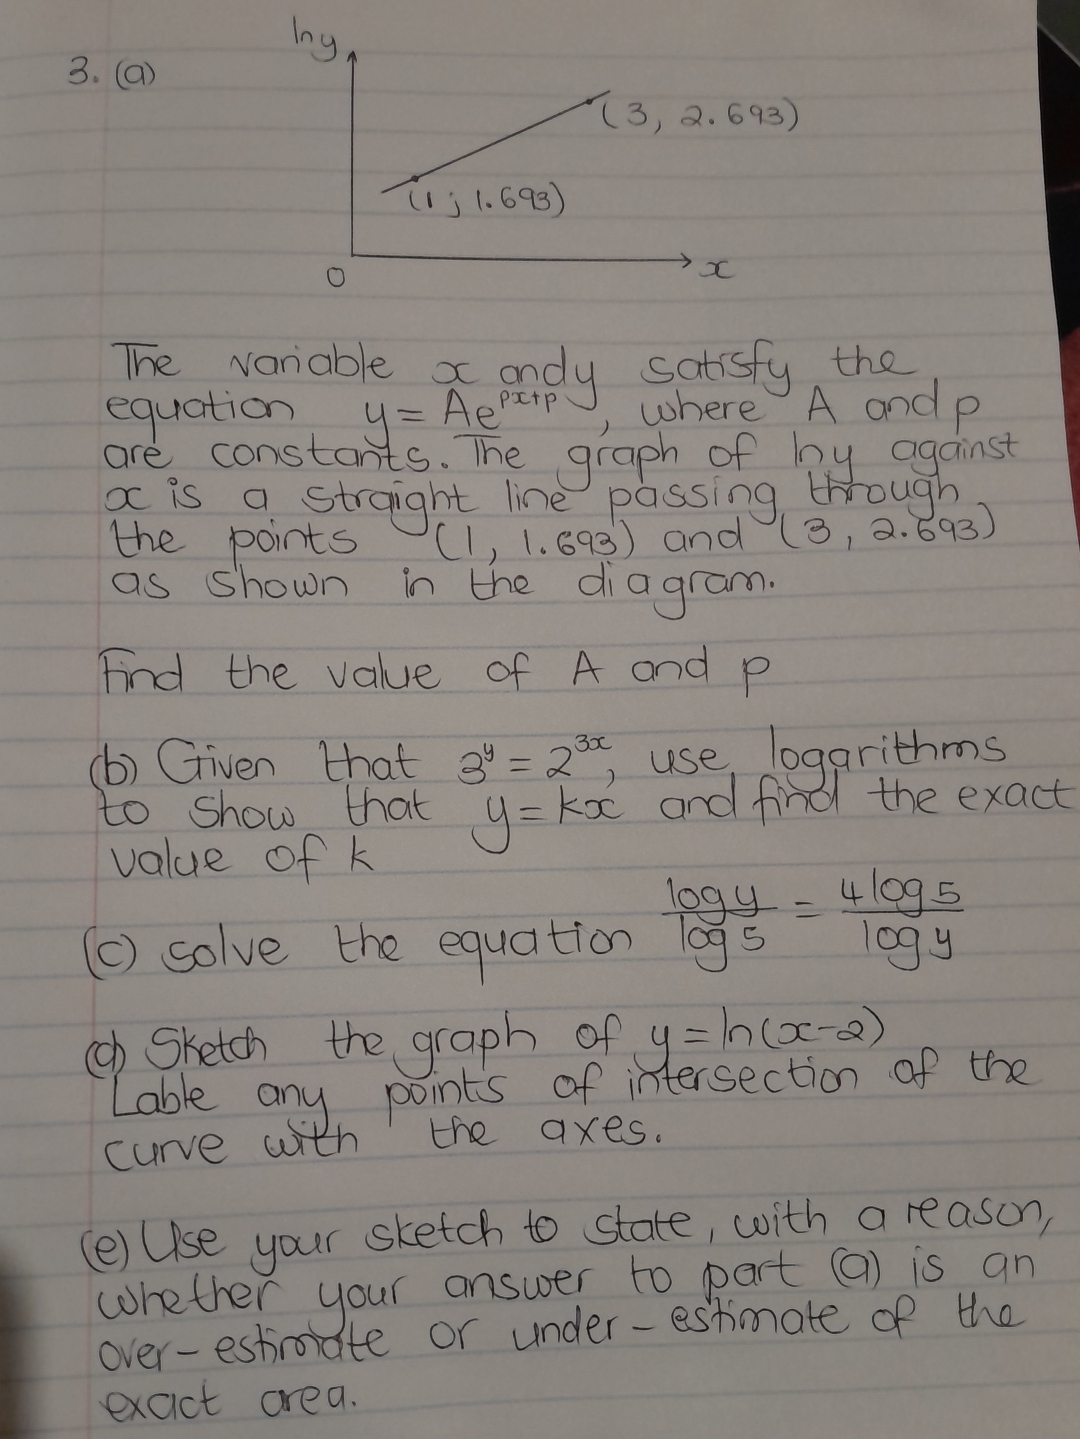 3. (a)
ln y
(3, 2.693)
(1 ; 1.693)
0
x
The variable x and y satisfy the
equation y = Ae^{px+p}, where A and p
are constants. The graph of ln y against
x is a straight line passing through
the points (1, 1.693) and (3, 2.693)
as shown in the diagram.
Find the value of A and p
(b) Given that 3^y = 2^{3x}, use logarithms
to show that y = kx and find the exact
value of k
(c) solve the equation log y / log 5 = 4 log 5 / log y
(d) Sketch the graph of y = ln(x-2)
Lable any points of intersection of the
curve with the axes.
(e) Use your sketch to state, with a reason,
whether your answer to part (a) is an
over-estimate or under-estimate of the
exact area.